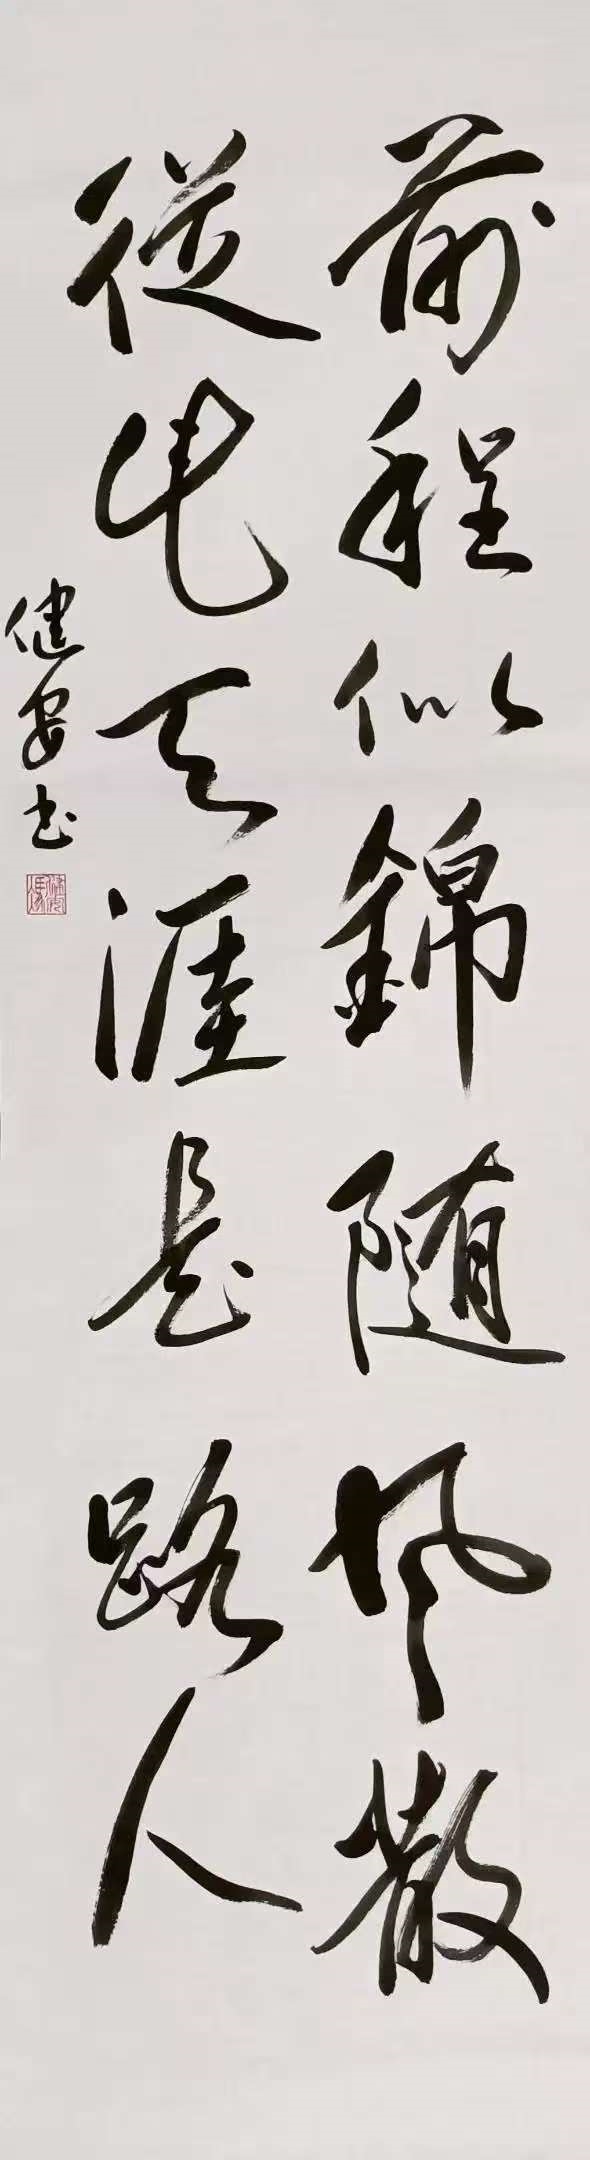 前程似錦隨風散
從此天涯是路人
健安书